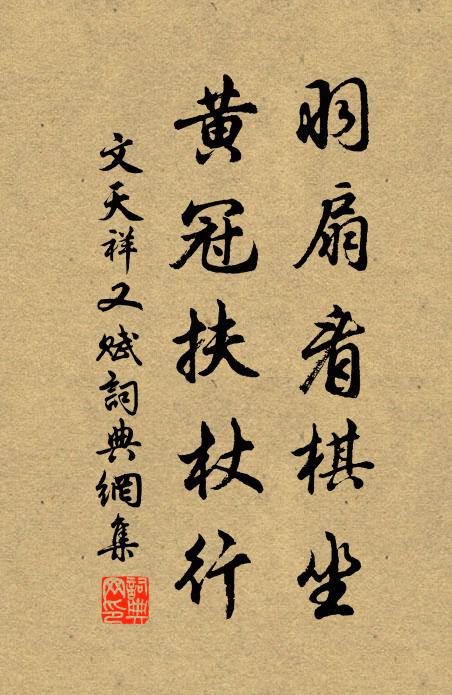 羽扇看棋坐
黄冠扶杖行
文天祥又賦詞典網集
詞典網印